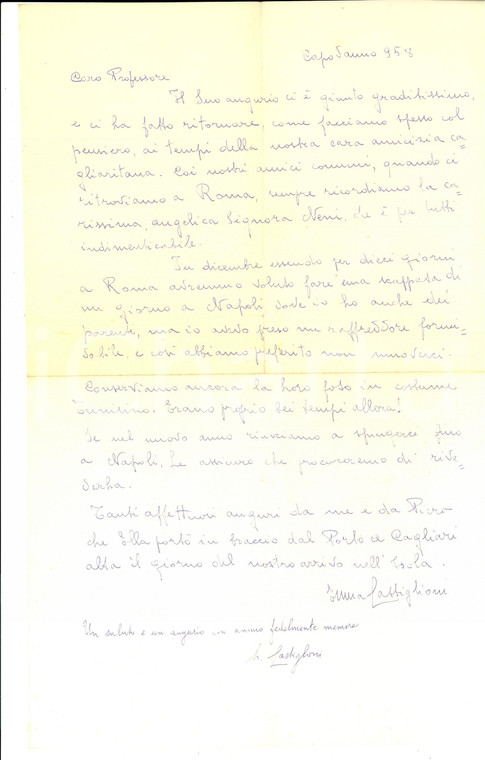 Capodanno 958
Caro Professore
Il Suo augurio ci è giunto graditissimo,
e ci ha fatto ritornare, come facciamo spesso col
pensiero, ai tempi della nostra cara amicizia ca-
gliaritana. Coi nostri amici comuni, quando ci
ritroviamo a Roma, sempre ricordiamo la ca-
rissima, angelica Signora Neni, che è per tutti
indimenticabile.
In dicembre essendo per dieci giorni
a Roma avremmo voluto fare una scappata di
un giorno a Napoli dove io ho anche dei
parenti, ma io avevo preso un raffreddore formi-
dabile, e così abbiamo preferito non muoverci.
Conserviamo ancora la loro foto in costume
tunisino. Erano proprio bei tempi allora!
Se nel nuovo anno riusciamo a spingerci fino
a Napoli, Le assicuro che procureremo di rive-
derLa.
Tanti affettuosi auguri da me e da Piero
che Ella portò in braccio dal Porto a Cagliari
alta il giorno del nostro arrivo nell'Isola.
Emma Castiglioni
Un saluto e un augurio con animo fedelmente memore
Castiglioni